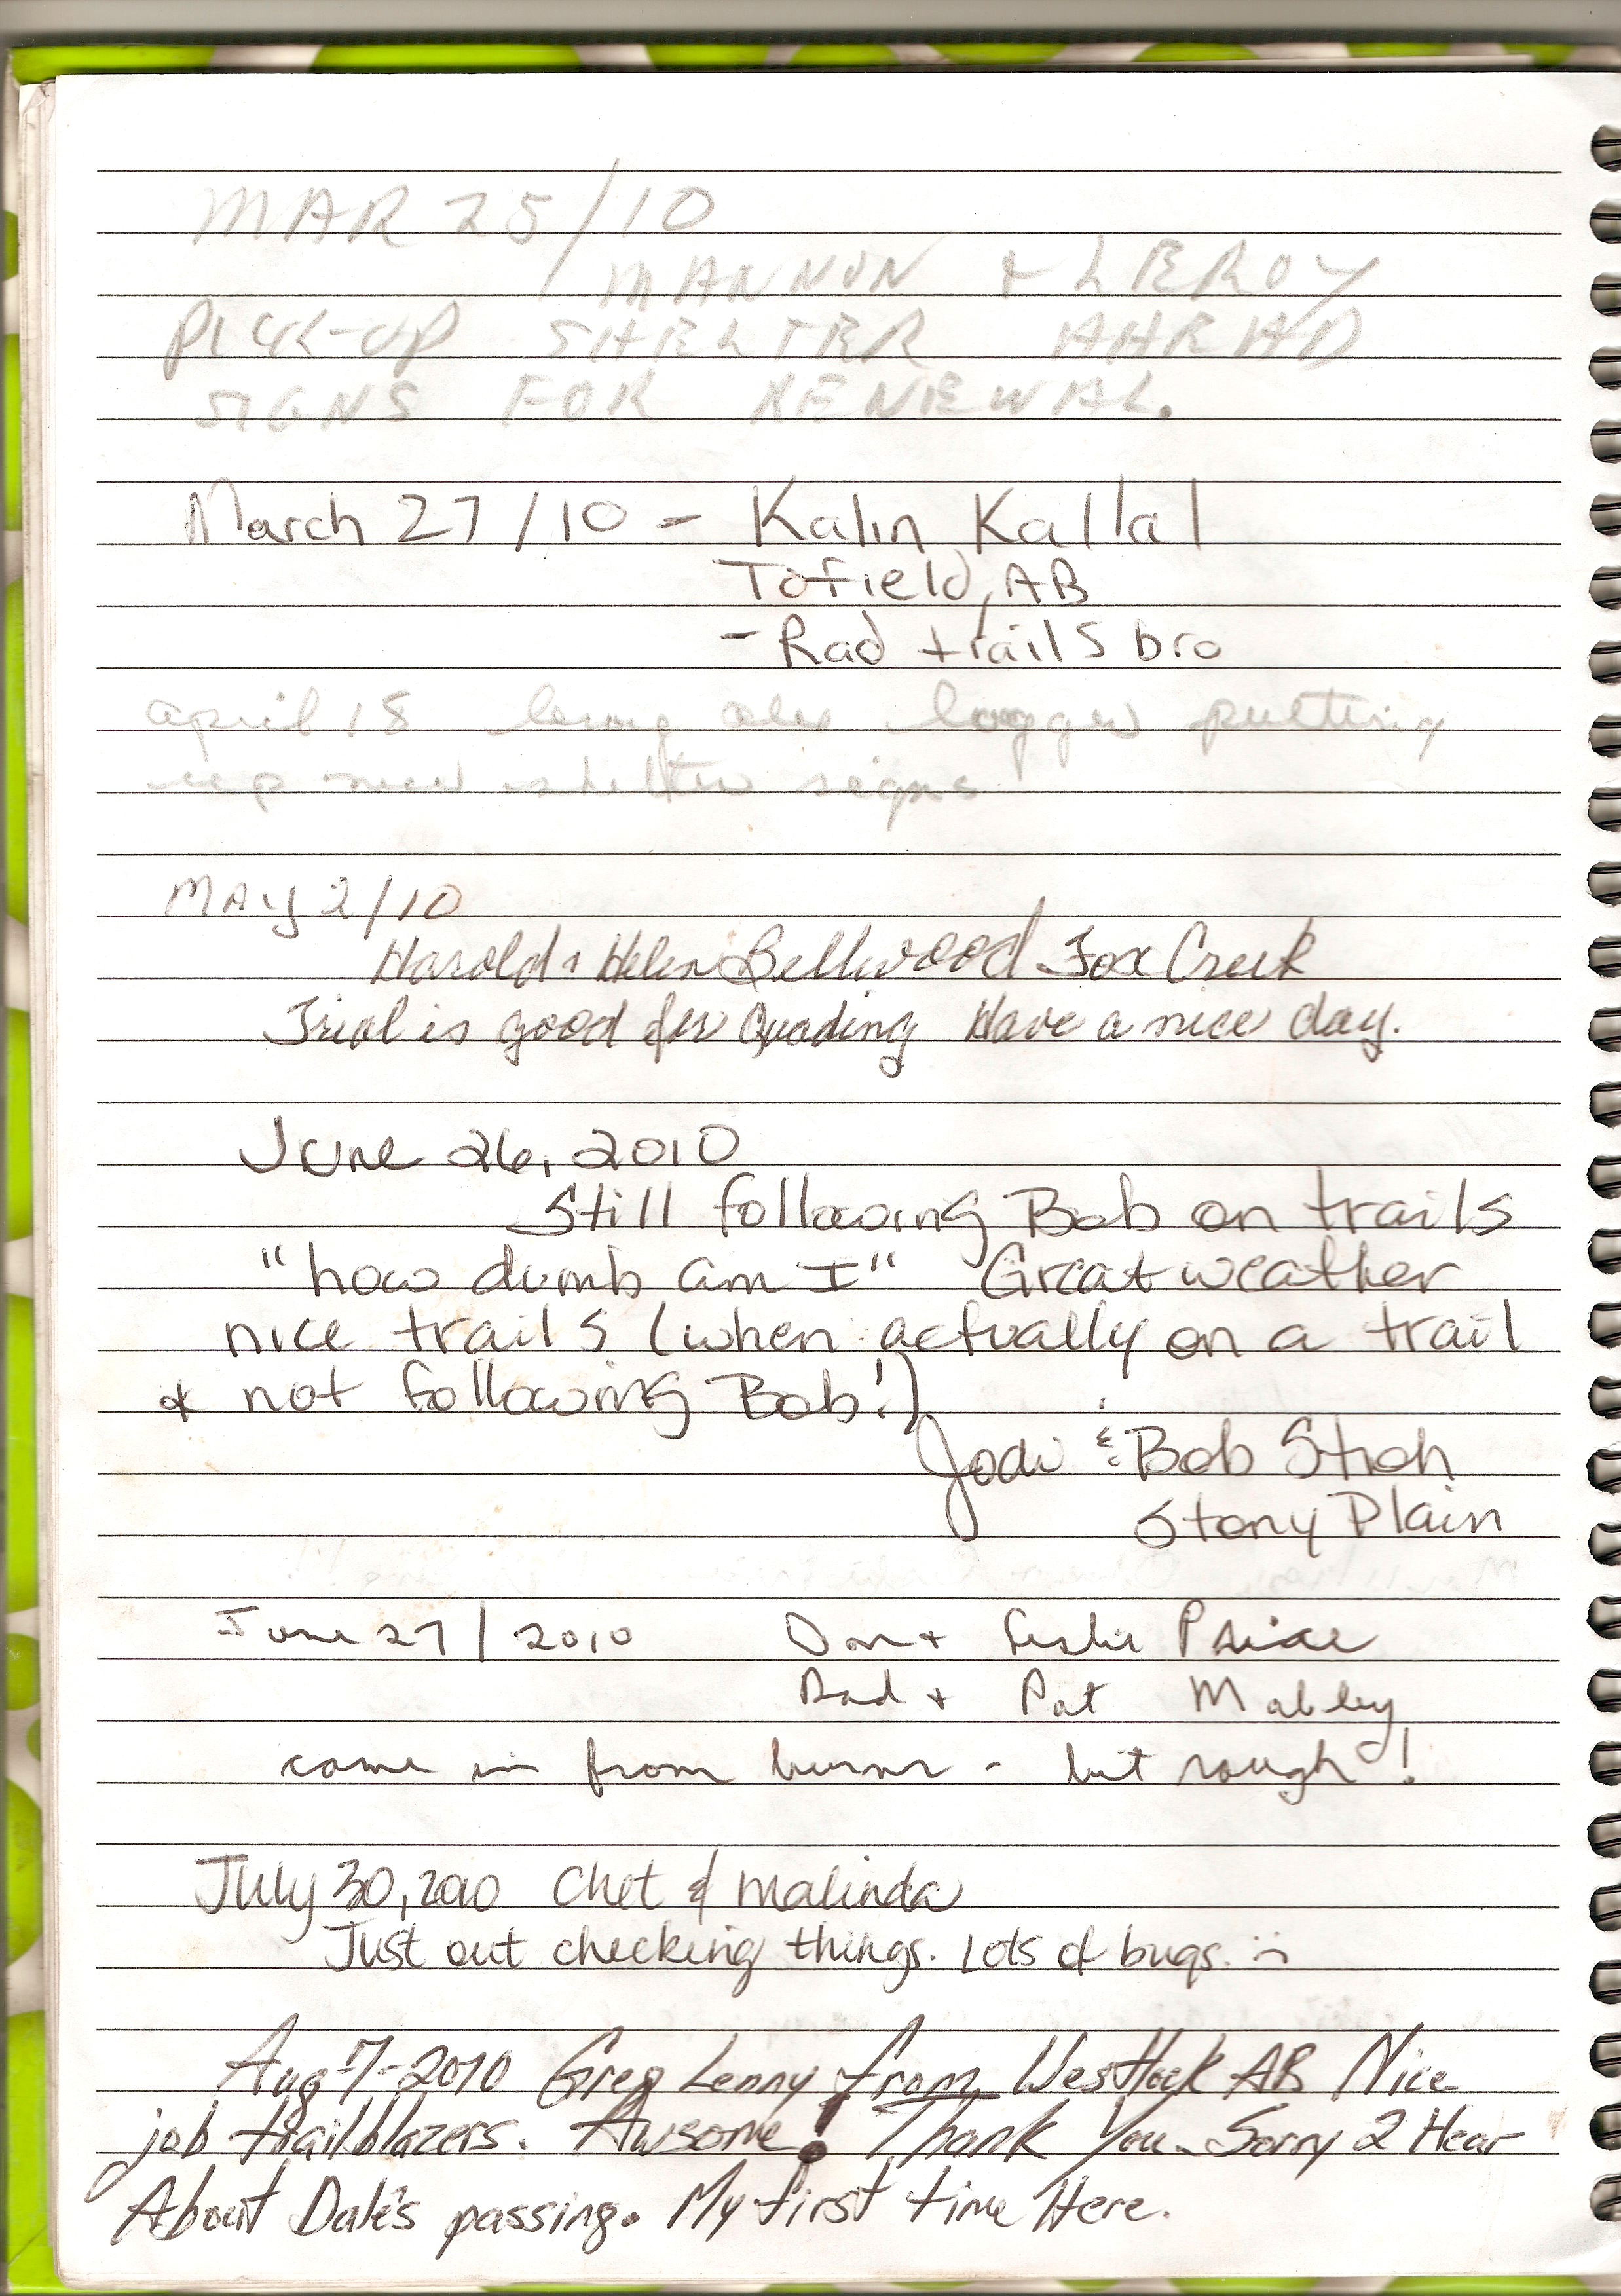 MAR 25/10
MANNON + LEROY
PICK-UP SHELTER AHEAD
SIGNS FOR RENEWAL.
March 27/10 - Kalin Kallal
Tofield, AB
- Rad trails bro
april 18 logger putting
up new shelter signs
MAy 2/10
Harold & Helen Bellwood Fox Creek
Trial is good for Quading Have a nice day.
June 26, 2010
Still following Bob on trails
"how dumb am I" Great weather
nice trails (when actually on a trail
& not following Bob!)
Jodi & Bob Stroh
Stony Plain
June 27/2010 Don + Leslie Price
Dad + Pat Mabley
came in from - but rough!
July 30, 2010 Chet & Malinda
Just out checking things. Lots of bugs. :(
Aug-7-2010 Greg Lenny from Westlock AB Nice
job trailblazers. Awsome! Thank You. Sorry 2 Hear
About Dale's passing. My first time Here.